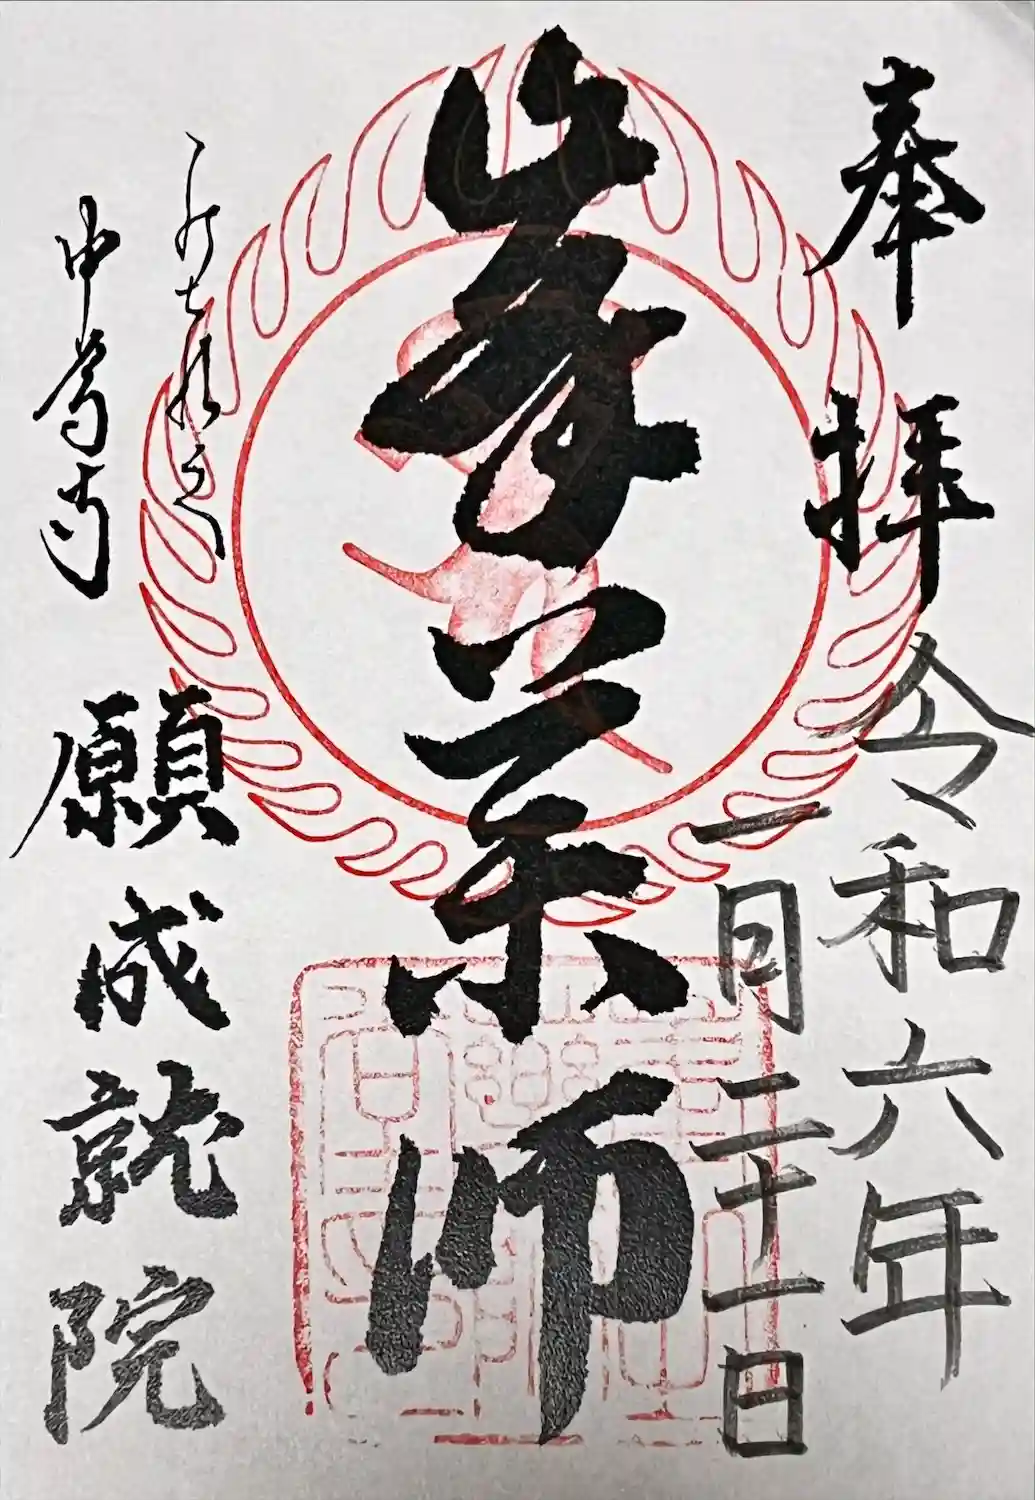 奉拝
令和六年
一月二十一日
峯薬師
中尊寺
願成就院